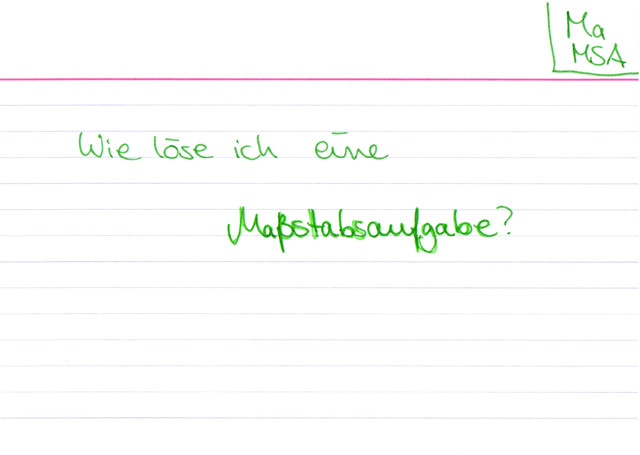 Ma
MSA
Wie löse ich eine
Maßstabsaufgabe?